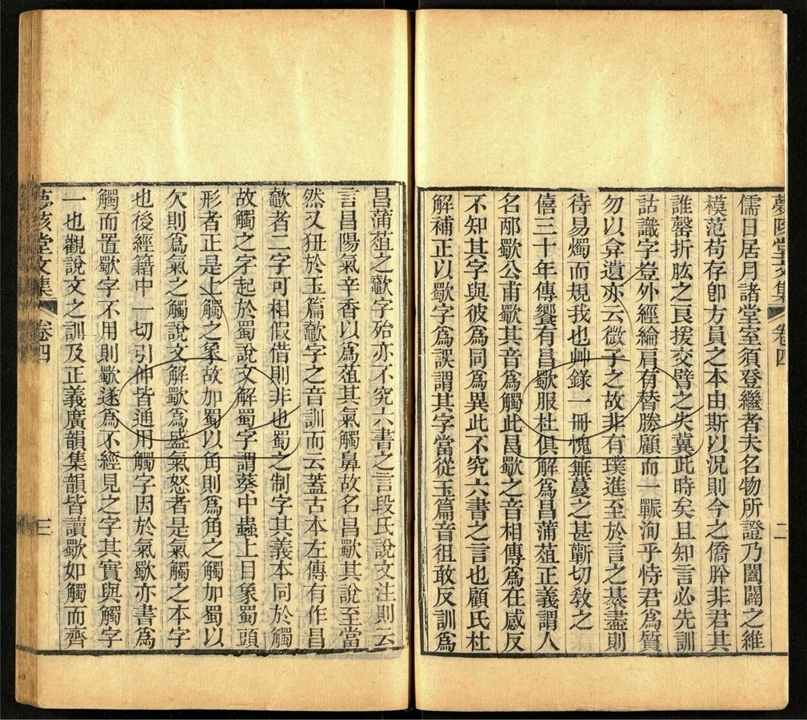 夢陔堂文集 卷四 二
儒日居月諸堂室須登繼者夫名物所證乃闔闢之維
模范苟存卽方員之本由斯以況則今之僑肸非君其
誰罄折肱之良援交臂之失冀此時矣且知言必先訓
詁識字登外經綸肩有替勝願而一賑洵乎恃君爲質
勿以弇遺亦云微子之故非有璞進至於言之棊盡則
待易燭而規我也艸錄一冊愧無蔓之甚蘄切敎之
僖三十年傳饗有昌歜服杜俱解爲昌蒲葅正義謂人
名邴歜公甫歜其音爲觸此昌歜之音相傳爲在感反
不知其字與彼爲同爲異此不究六書之言也顧氏杜
解補正以歜字爲誤謂其字當從玉篇音徂敢反訓爲
昌蒲葅之歜字殆亦不究六書之言段氏說文注則云
言昌陽氣辛香以爲葅其氣觸鼻故名昌歜其說至當
然又狃於玉篇歜字之音訓而云蓋古本左傳有作昌
歜者二字可相假借則非也蜀之制字其義本同於觸
故觸之字起於蜀說文解蜀字謂葵中蟲上目象蜀頭
形者正是上觸之象故加蜀以角則爲角之觸加蜀以
欠則爲氣之觸說文解歜爲盛氣怒者是氣觸之本字
也後經籍中一切引伸皆通用觸字因於氣歜亦書爲
觸而置歜字不用則歜遂爲不經見之字其實與觸字
一也觀說文之訓及正義廣韻集韻皆讀歜如觸而齊
夢陔堂文集 卷四 三